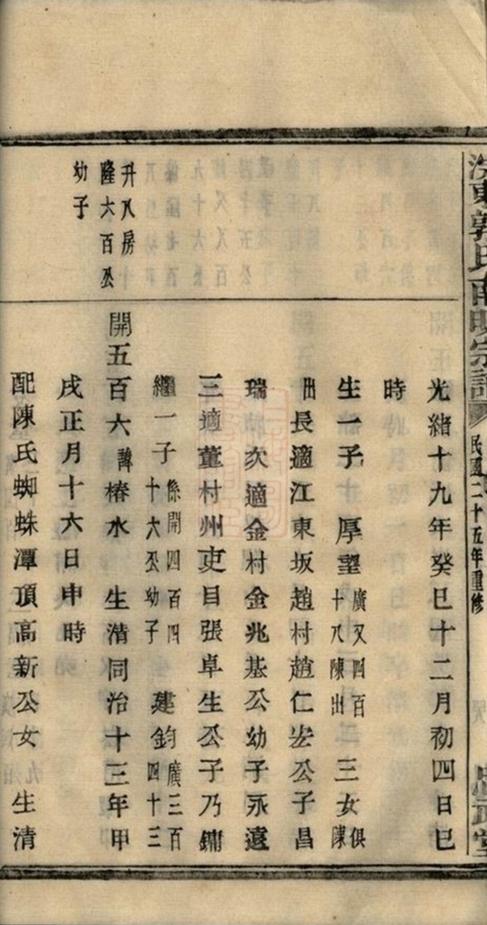 東郭氏南明宗譜
民國二十五年重修
光緒十九年癸巳十二月初四日巳
時
生一子 厚望 廣又四百
十八陳出 三女俱陳
出長適江東坂趙村趙仁宏公子昌
瑞 次適金村金兆基公幼子永遠
三適董村州吏目張卓生公子乃鏞
繼一子 係開四百四
十六公幼子 建鈞 廣三百
四十三
升八房
隆六百公
幼子
開五百六 諱椿水 生清同治十三年甲
戌正月十六日申時
配陳氏蜘蛛潭頂高新公女 生清